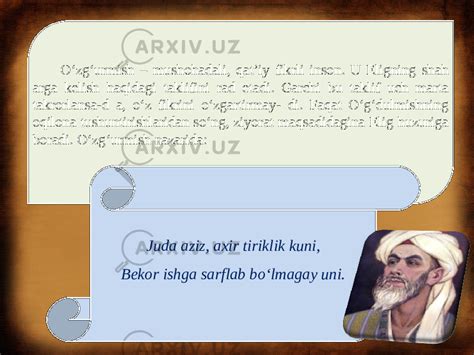 ARXIV.UZ
O‘zg‘urmish – mushohadali, qat’iy fikrli inson. U Eligning shah
arga kelish haqidagi taklifini rad etadi. Garchi bu taklif uch marta
takrorlansa-d a, o‘z fikrini o‘zgartirmay- di. Faqat O‘gdulmishning
oqilona tushuntirishlaridan so‘ng, ziyorat maqsadidagina Elig huzuriga
boradi. O‘zg‘urmish nazarida:
ARXIV.UZ
Juda aziz, axir tiriklik kuni,
ARXIV.UZ
Bekor ishga sarflab bo‘lmagay uni.
ARXIV.UZ